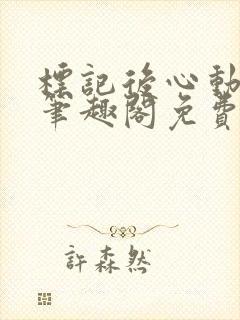 標記後心動
筆趣閣免費
許森然